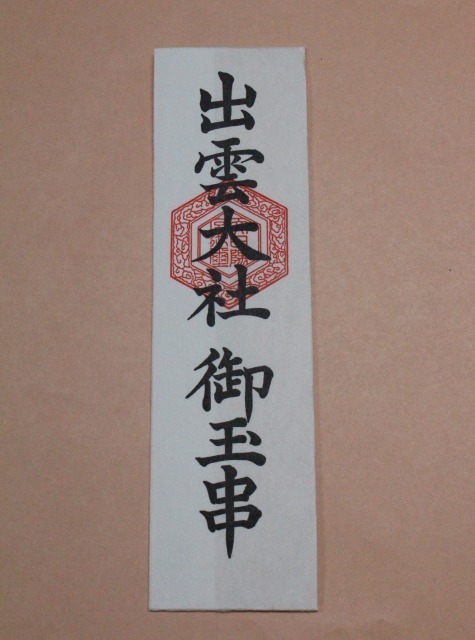 出雲大社 御玉串